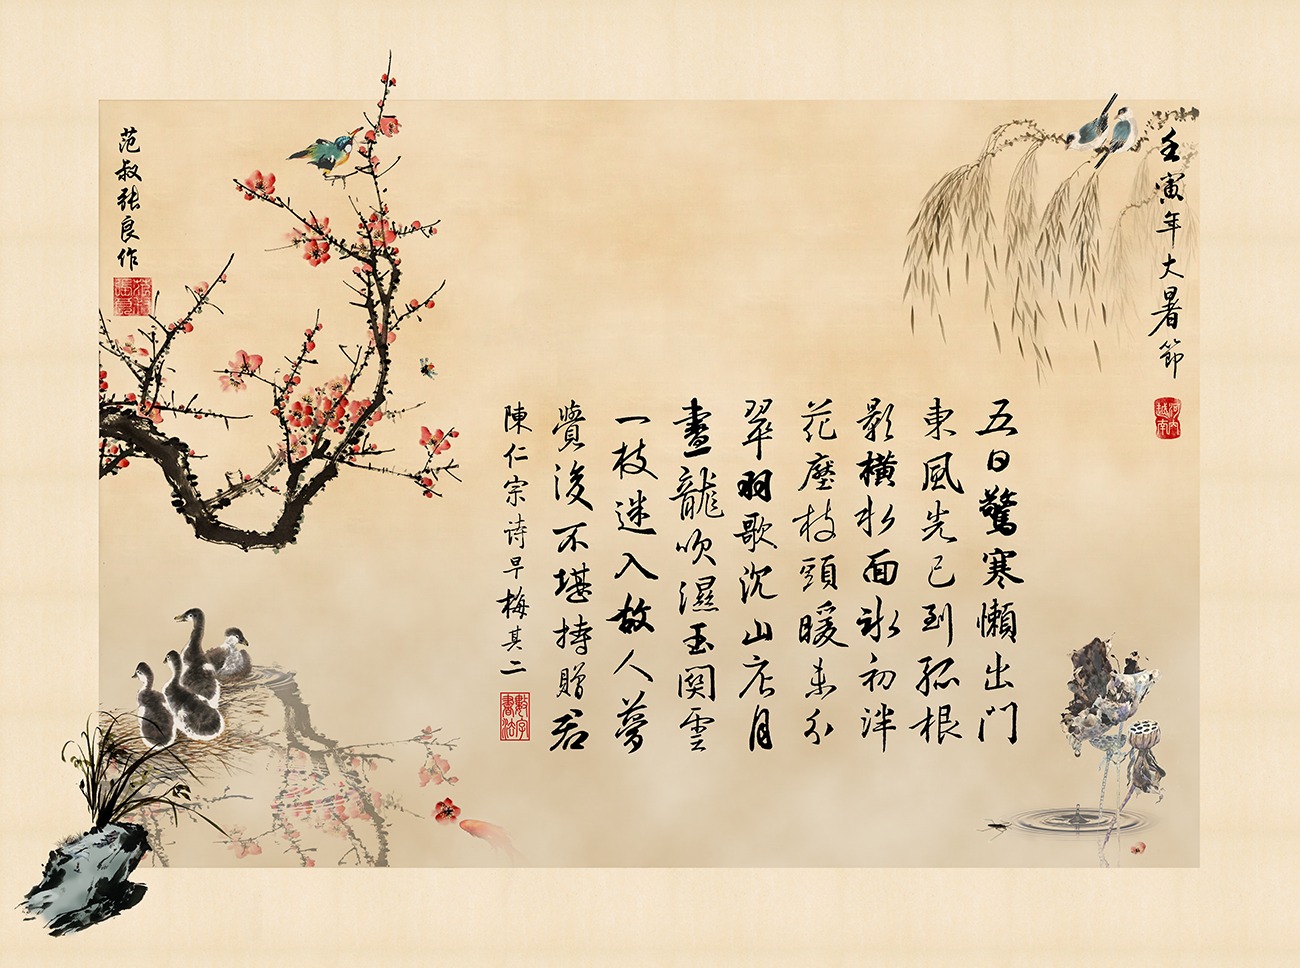 壬寅年大暑節
河内越南
五日驚寒懶出門
東風先已到孤根
影橫水面氷初泮
花壓枝頭暖未分
翠羽歌沉山店月
畫龍吹濕玉関雲
一枝迷入故人夢
覺後不堪持贈君
陳仁宗诗早梅其二
數字書法
范叔张良作